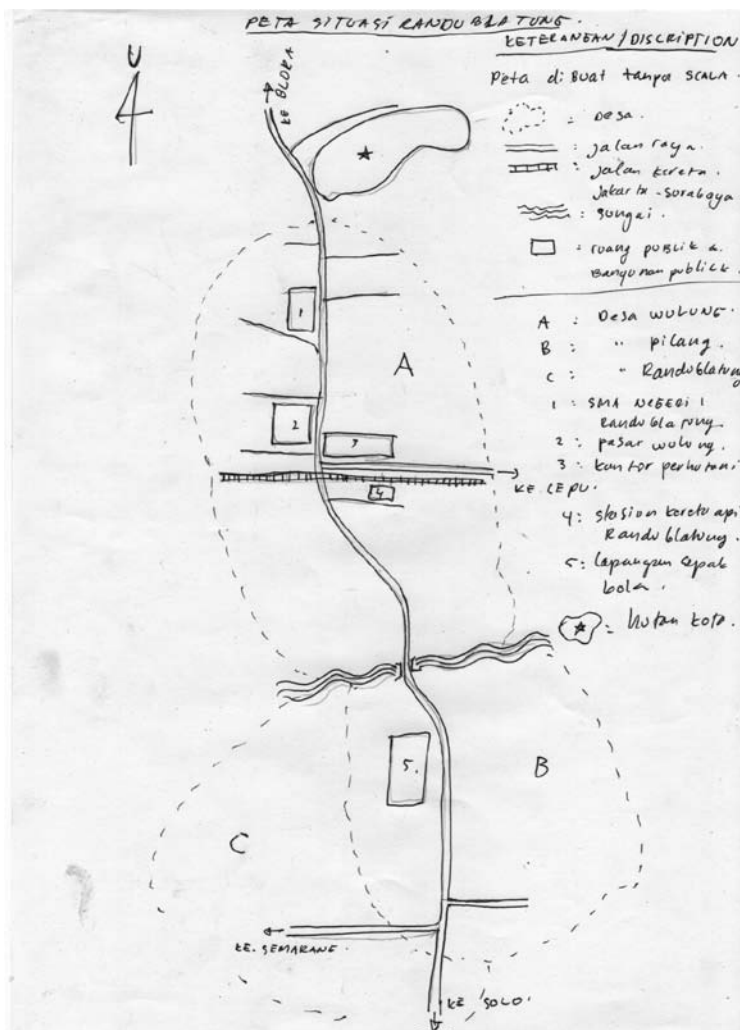 PETA SITUASI RANDUBLATUNG.
KETERANGAN/DISCRIPTION
Peta di Buat tanpa SCALA.
: Desa.
: jalan raya.
: jalan kereta.
Jakarta-surabaya
: sungai.
: ruang publik &.
Bangunan publick.
A : Desa WULUNG.
B : " pilang.
C : " Randublatung
1 : SMA NEGERI 1
Randublatung.
2 : pasar wulung.
3 : kantor perhutani
4 : stasion kereta api
Randublatung.
5 : lapangan sepak
bola.
= hutan kota.
U
KE BLORA
1
A
2
3
KE CEPU.
4
5.
B
C
KE. SEMARANG.
KE SOLO.